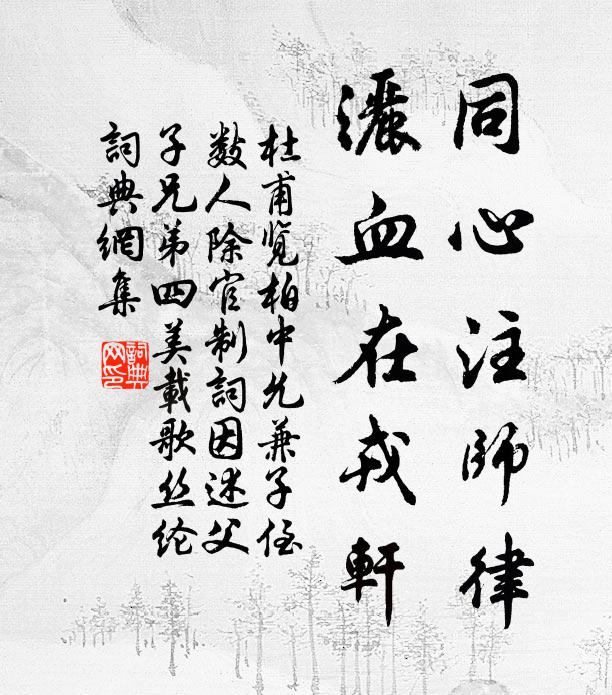 同心注師律
灑血在戎軒
杜甫覽柏中允兼子侄
數人除官制詞因述父
子兄弟四美載歌丝纶
詞典網集
詞典
网印